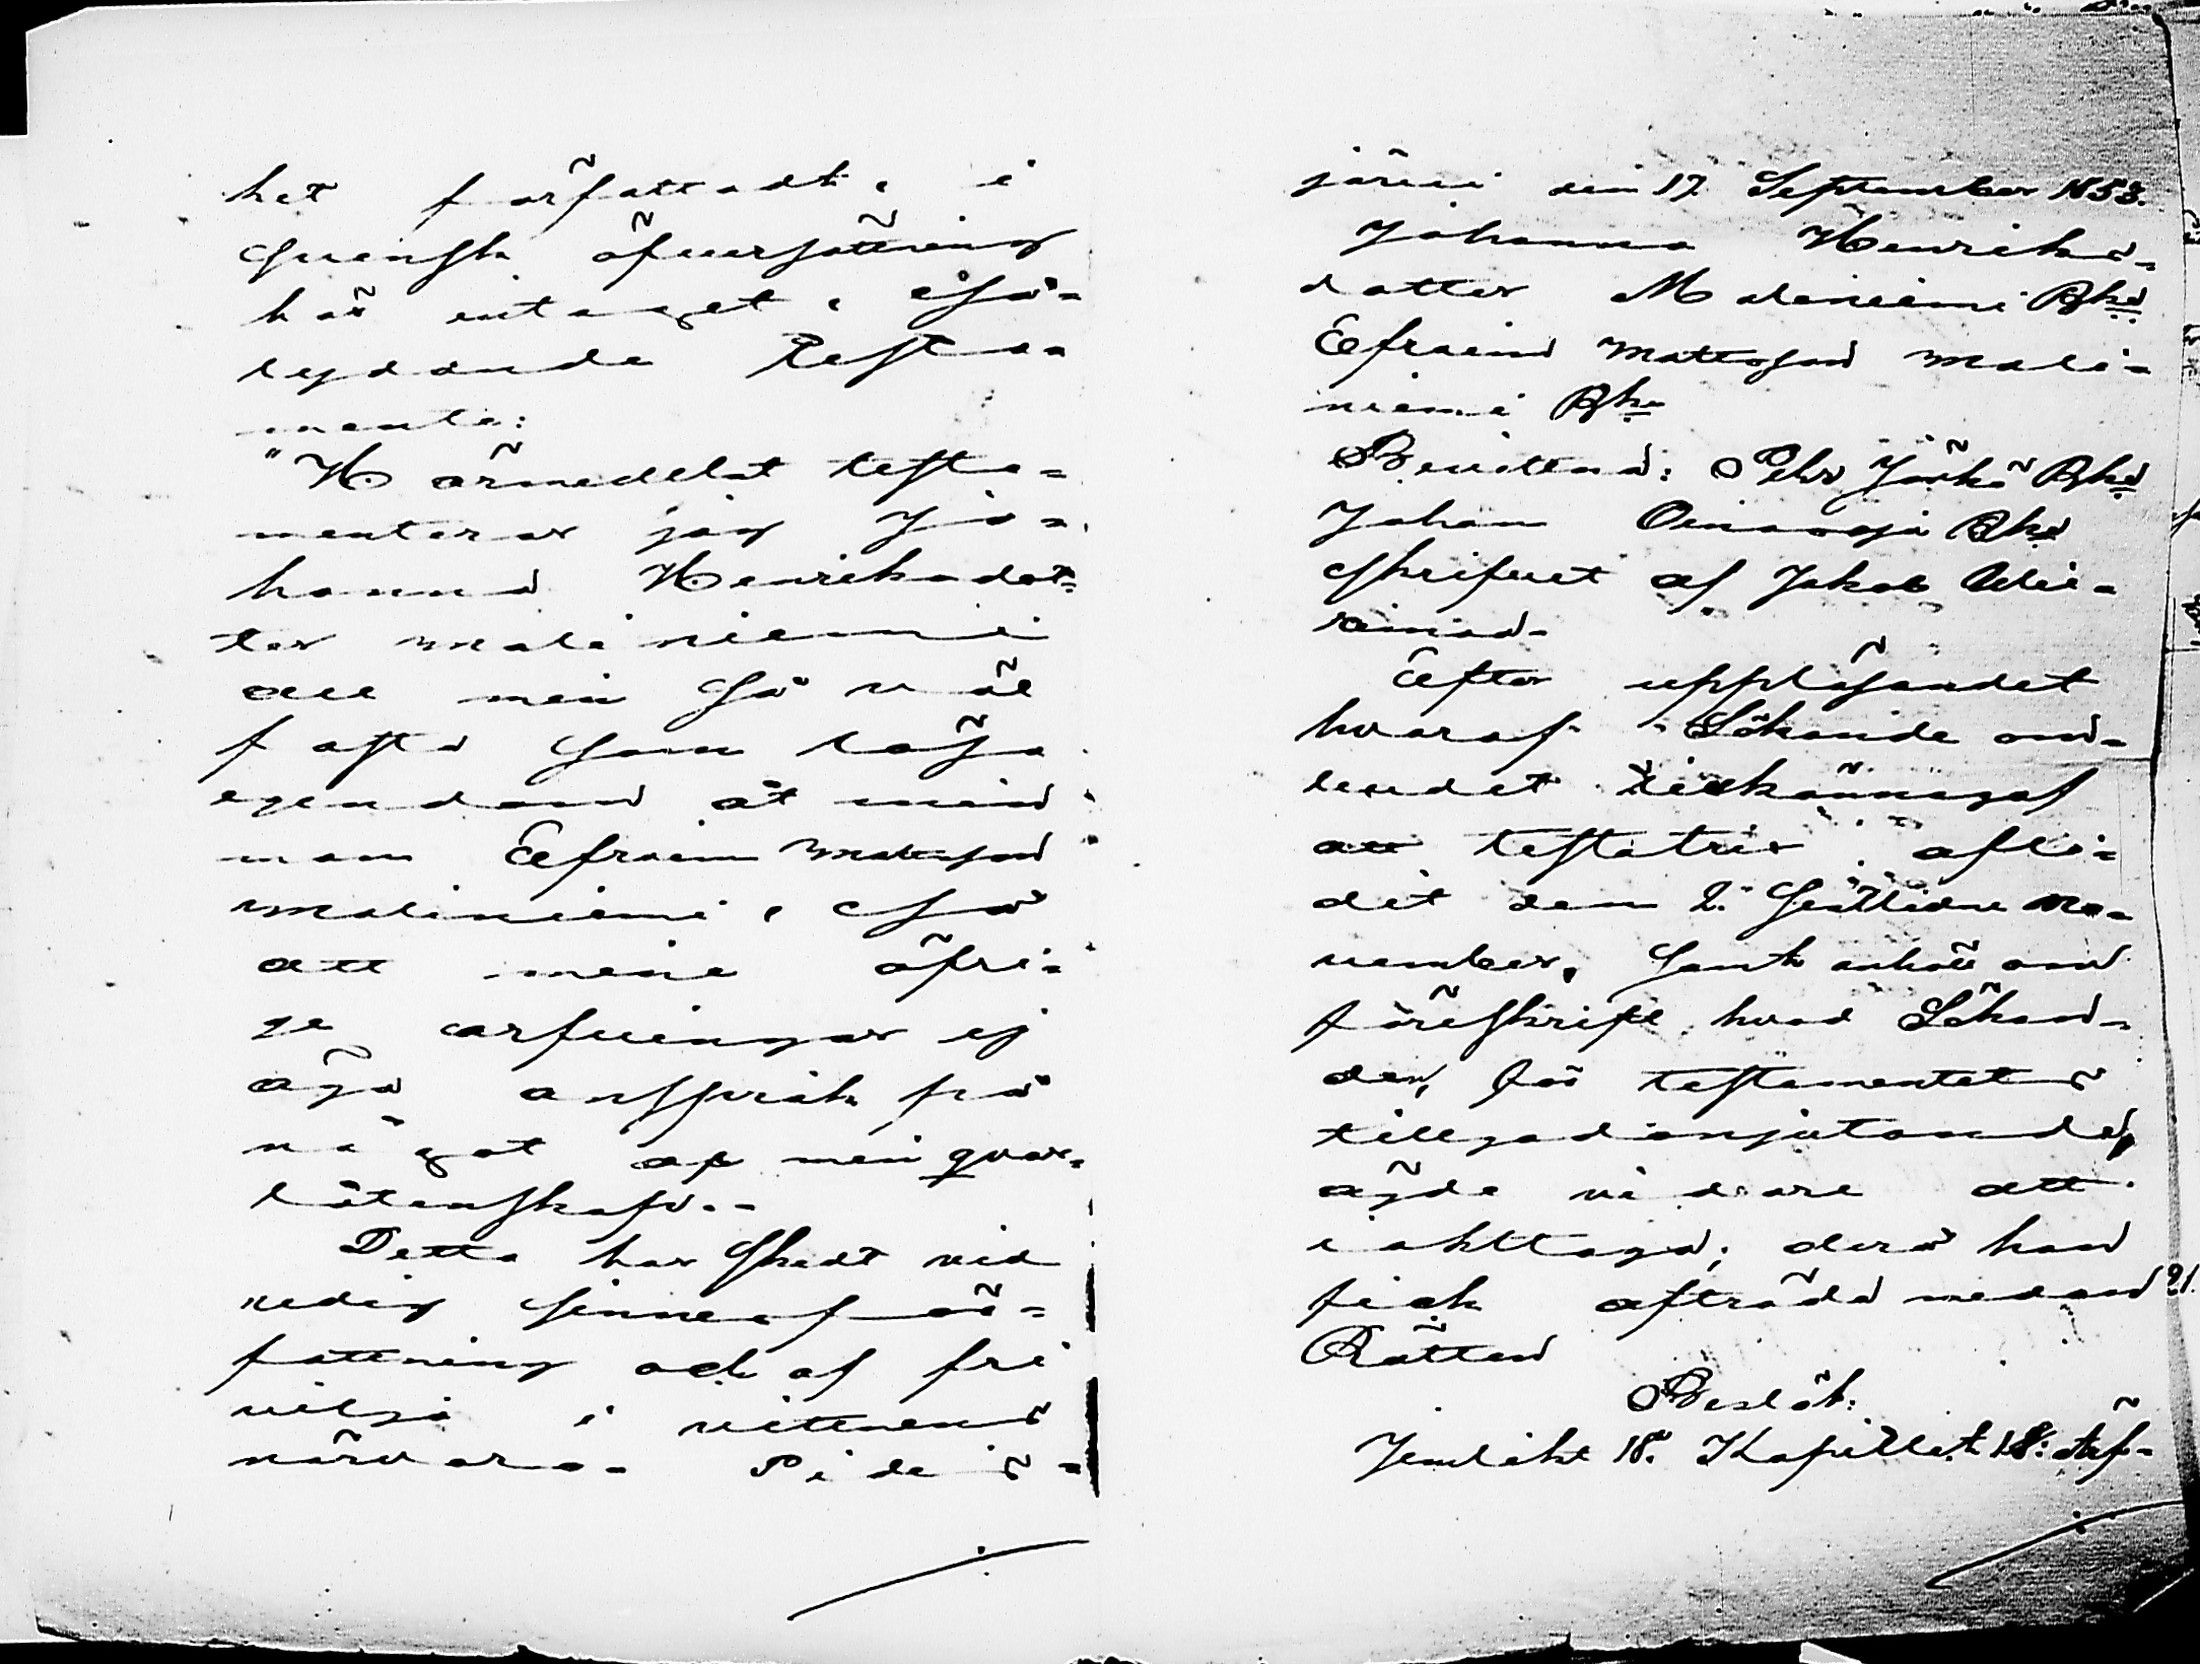 het författadt, i
Svensk öfversättning
här intaget, så-
lydande Testa-
mente:
"Härmedelst testa-
menterar jag Jo-
hanna Henriksdot-
ter Maliniemi
all min så väl
fasta som lösa
egendom åt min
man Efraim Mattsson
Maliniemi, så
att mine öfri-
ge arfvingar ej
äga anspråk på
något af min qvar-
låtenskap.-
Detta har skedt vid
redig sinnesför-
fattning och af fri
vilja i vittnens
närvaro. Pides-
järvi den 17 September 1853.
Johanna Henriks-
dotter Maliniemi Bmk
Efraim Mattsson Mali-
niemi Bmk
Bevittna: Pehr Bmk
Johan Oinasoja Bmk
skrifvet af Jakob
Efter uppläsandet
hvaraf Sökande om-
budet tillkännagaf
att testatrix afli-
dit den 2. sistlidne No-
vember, samt anhöll om
föreskrift, hvad Sökan-
den, för testamentets
tillgodonjutande,
ägde vidare att
iakttaga; derå han
fick afträda medan
Rätten
Beslöt:
Jemlikt 18. Kapitlet 1 §. Ärf-